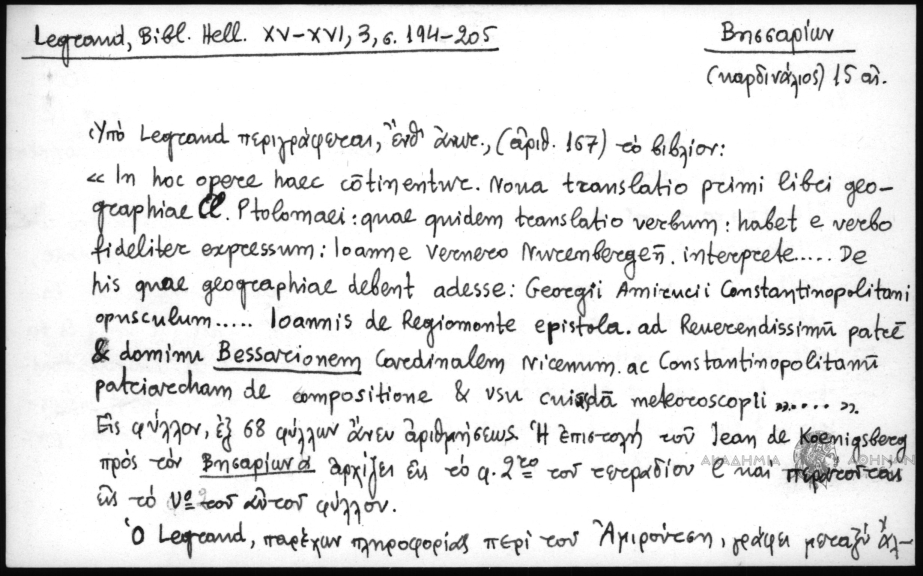 Legrand, Bibl. Hell. XV–XVI, 3, σ. 194–205
Βησσαρίων
(καρδινάλιος) 15 αἰ.
Ὑπὸ Legrand περιγράφεται, ἔνθ' ἀνωτ., (ἀριθ. 167) τὸ βιβλίον:
« In hoc opere haec cōtinentur. Noua translatio primi libri geo–
graphiae Cl. Ptolomaei: quae quidem translatio verbum: habet e verbo
fideliter expressum: Ioanne Vernero Nurenbergeñ. interprete..... De
his quae geographiae debent adesse: Georgii Amirucii Constantinopolitani
opusculum..... Ioannis de Regiomonte epistola. ad Reuerendissimū patrē
& dominu Bessarionem Cardinalem Nicenum. ac Constantinopolitanū
patriarcham de compositione & vsu cuiusdā meteoroscopii »..... ».
Εἰς φύλλον, ἐξ 68 φύλλων ἄνευ ἀριθμήσεως. Ἡ ἐπιστολὴ τοῦ Jean de Koenigsberg
πρὸς τὸν Βησαρίωνα ἀρχίζει εἰς τὸ φ. 2 το τοῦ τετραδίου C καὶ περατοῦται
εἰς τὸ vº τοῦ αὐτοῦ φύλλου.
Ὁ Legrand, παρέχων πληροφορίας περὶ τοῦ Ἀμιρούτση, γράφει μεταξὺ ἄλ–
ΑΚΑΔΗΜΙΑ ΑΘΗΝΩΝ